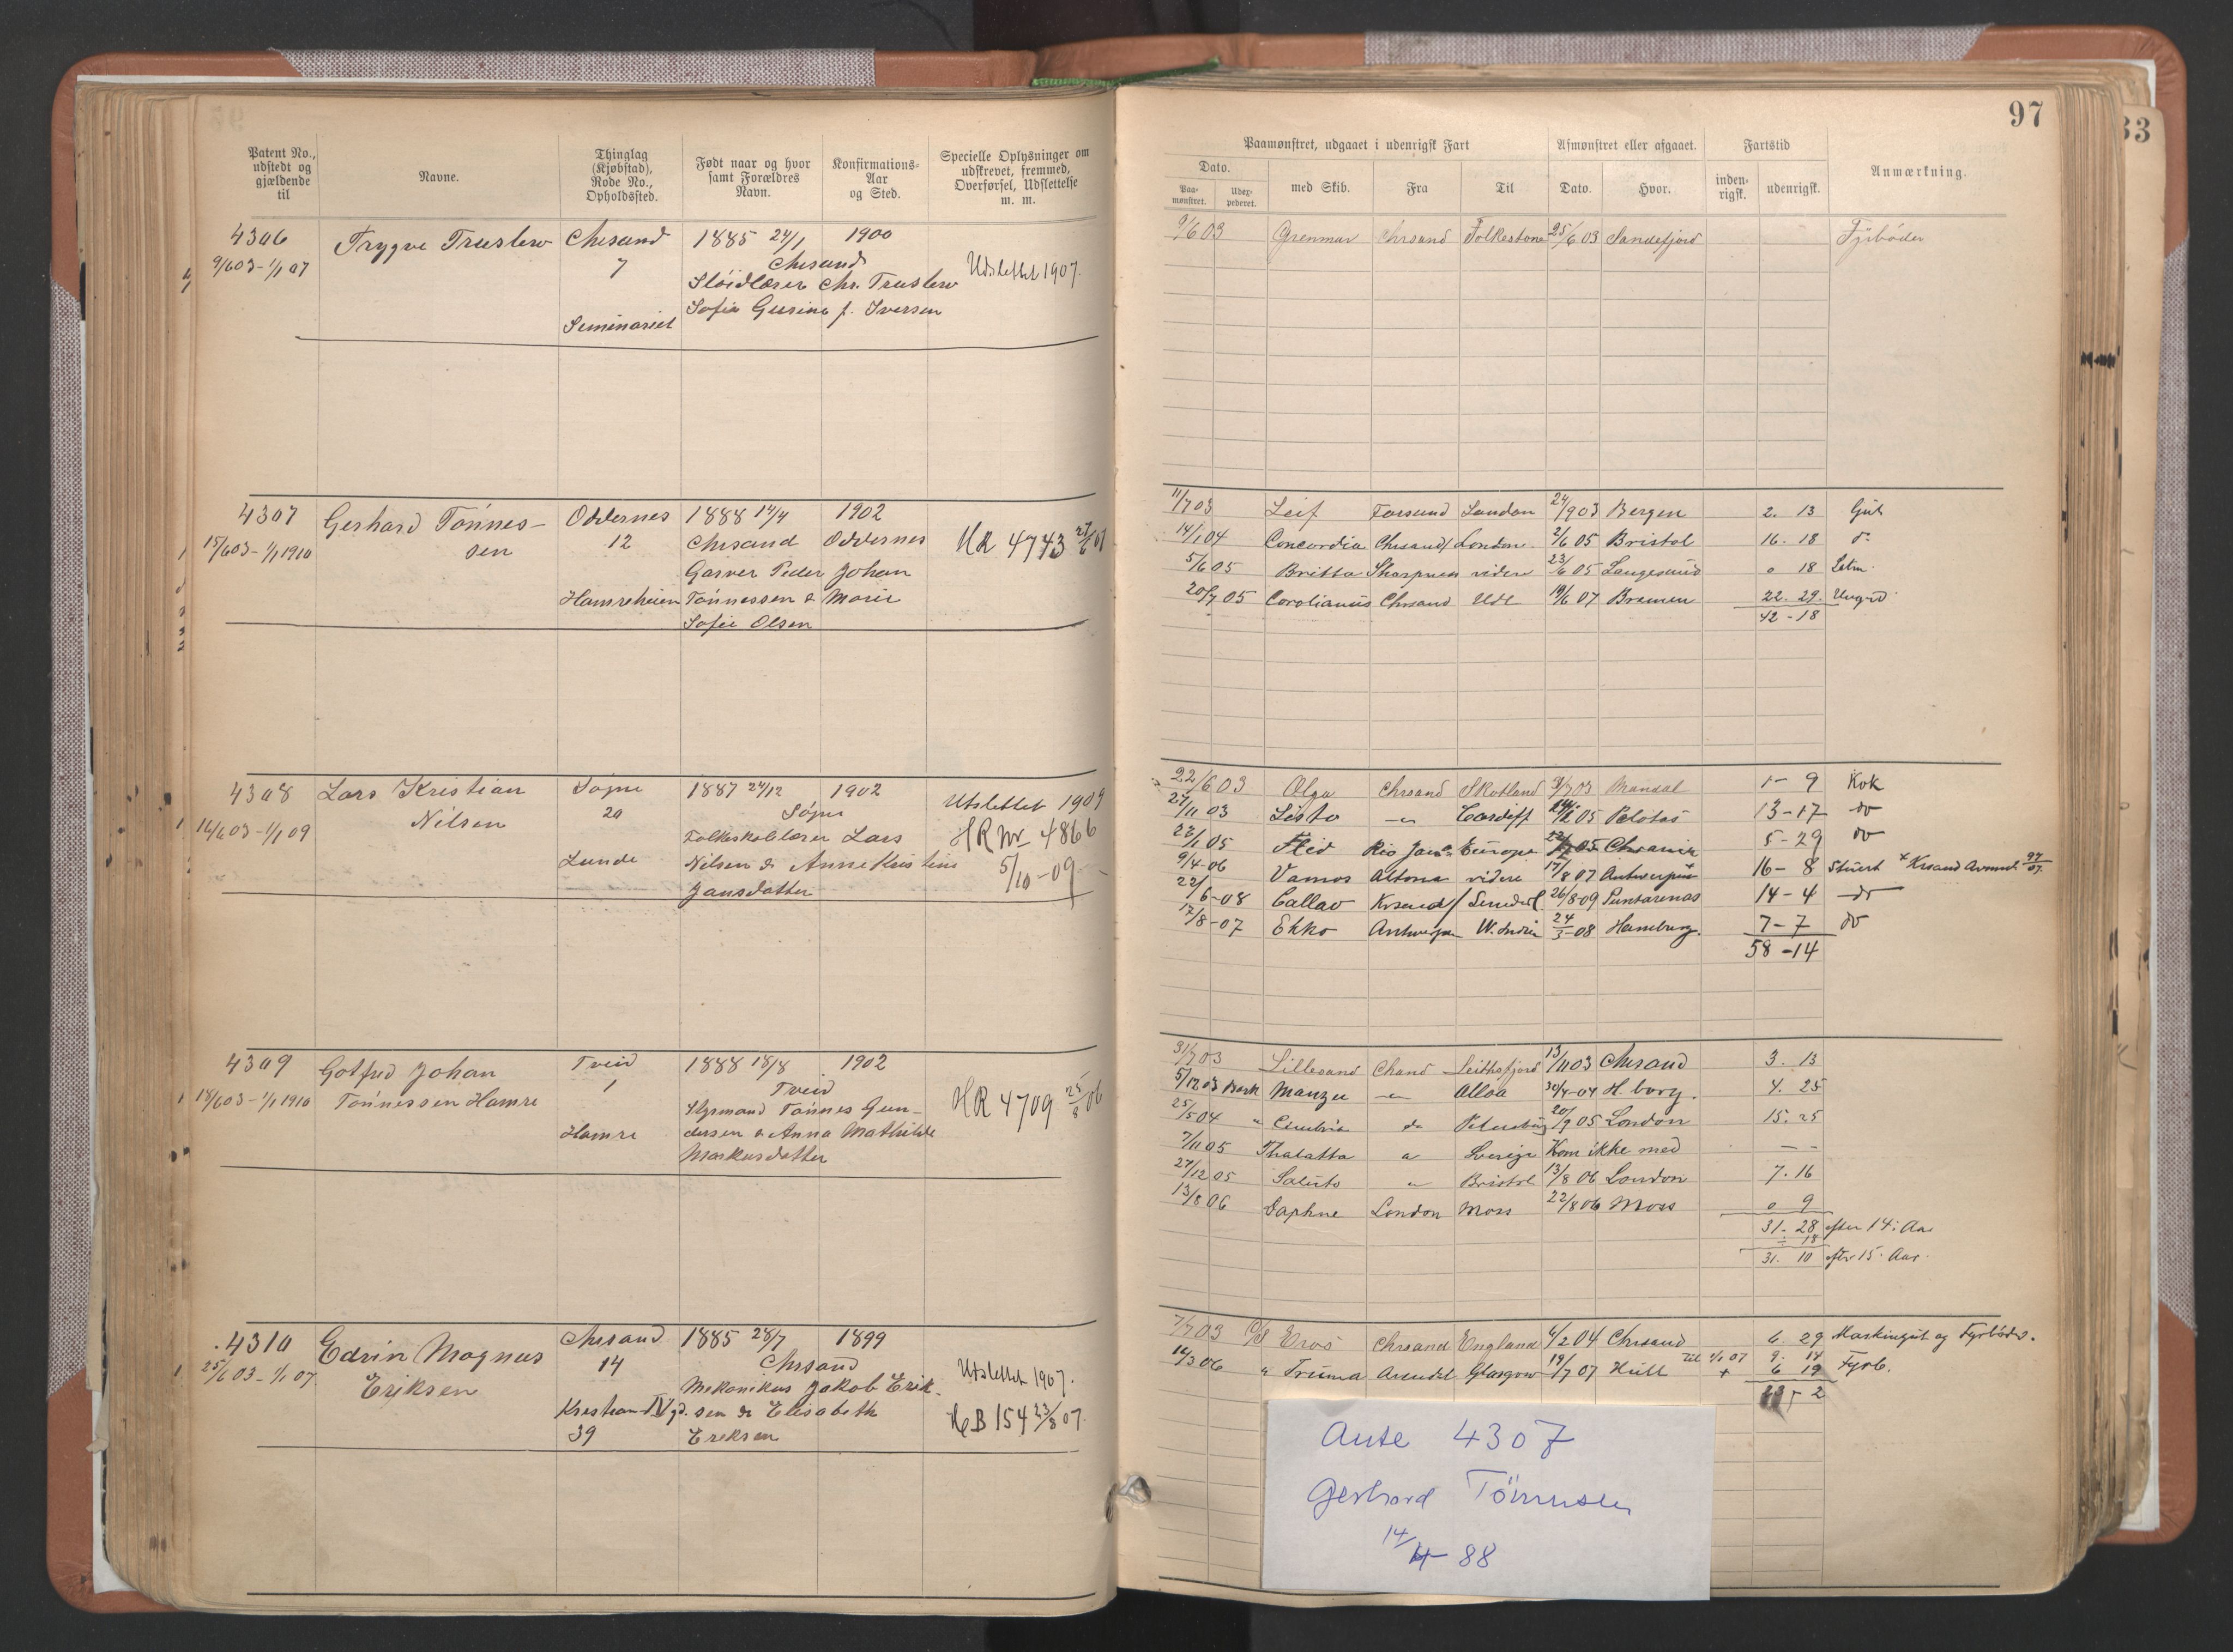 97
33
Patent No., udstedt og gjældende til
Navne.
Thinglag (Kjøbstad), Rode No., Opholdssted.
Født naar og hvor samt Forældres Navn.
Konfirmations-Aar og Sted.
Specielle Oplysninger om udskrevet, fremmed, Overførsel, Udslettelse m. m.
Paamønstret, udgaaet i udenrigsk Fart
Afmønstret eller afgaaet.
Fartstid
Anmærkning.
Dato.
Paa-mønstret.
Udex-pederet.
med Skib.
Fra
Til
Dato.
Hvor.
inden-rigsk.
udenrigsk.
4306 Trygve Trusler Chrsand 1885 24/1 1900
9/603-1/1 07 7 Chrsand Udslettet 1907.
Sløidlærer Chr. Trusler
Seminariet Sofie Gurine f. Iversen
9/6 03 Grenmar Chrsand Folkestone 25/6 03 Sandefjord Fyrbøder
4307 Gerhard Tönnes- Oddernes 1888 14/4 1902
15/603-1/1 1910 sen 12 Chrsand Oddernes HR 4743 27/6 07
Garver Peder Johan
Hamreheien Tönnessen & Marie
Sofie Olsen
11/7 03 Leif Farsund London 24/9 03 Bergen 2. 13 Gut
14/1 04 Concordia Chrsand London 2/6 05 Bristol 16. 18 do
5/6 05 Britta Sharpness videre 23/6 05 Langesund 0 18 Letm.
20/7 05 Corolianus Chrsand Udl 19/6 07 Bremen 22. 29. Ungd
42-18
4308 Lars Kristian Søgne 1887 24/12 1902
16/603-1/1 09 Nilsen 20 Søgne Utslettet 1909
Folkeskolelærer Lars HR Nr 4866
Lunde Nilsen & Anne Kristine 5/10-09
Jansdatter
22/6 03 Olga Chrsand Skotland 31/7 03 Mandal 1-9 Kok
27/11 03 Lista -"- Cardiff 05 Pelotas 13-17 do
23/1 05 Rio Jan. Europa 05 Chrania 5-29 do
9/4-06 Vamos Altona videre 17/8 07 Antwerpen 16-8 Stuert * Krsand
22/6-08 Callao Krsand 26/8-09 Puntarenas 14-4 do
17/8-07 Ekko Antwerpen W. Indien 24/3-08 Hamburg. 7-7 do
58-14
4309 Gotfred Johan Tveid 1888 18/8 1902
18/603-1/1 1910 Tönnessen Hamre 1 Tveid HR 4709 25/8 06
Styrmand Tönnes Gun-
Hamre dersen & Anna Mathilde
Markusdatter
31/7 03 Lillesand Chsand Leithsfjord 13/11 03 Chrsand 3. 13
5/12 03 Bark Manzu -"- Alloa 30/4-04 H.borg. 4. 25
25/5 04 " Cimbria do Petersburg 20/9 05 London 15. 25
7/11 05 Thalatta " Sverige Kom ikke med - -
27/12 05 Saluto " Bristol 13/8 06 London 7. 16
13/8 06 Daphne London Moss 22/8 06 Moss 0 9
31. 28 efter 14. Aar
- 18
31. 10 efter 15. Aar.
4310 Edvin Magnus Chrsand 1885 28/7 1899
25/6 03-1/1 07 Eriksen 14 Chrsand Utslettet 1907.
Mekanikus Jakob Erik-
Kristian IVgd. sen & Elisabeth HeB 154 23/8 07.
39 Eriksen
7/7 03 D/S Eros Chrsand England 4/2 04 Chrsand 6. 29 Maskingut og Fyrbøder.
12/3 06 " Truma Arendal Glasgow 19/7 07 Hull Til 1/1 07 9. 14 Fyrb.
+ 6 19
2
Aute 4307
Gerhard Tönnessen
14/4-88